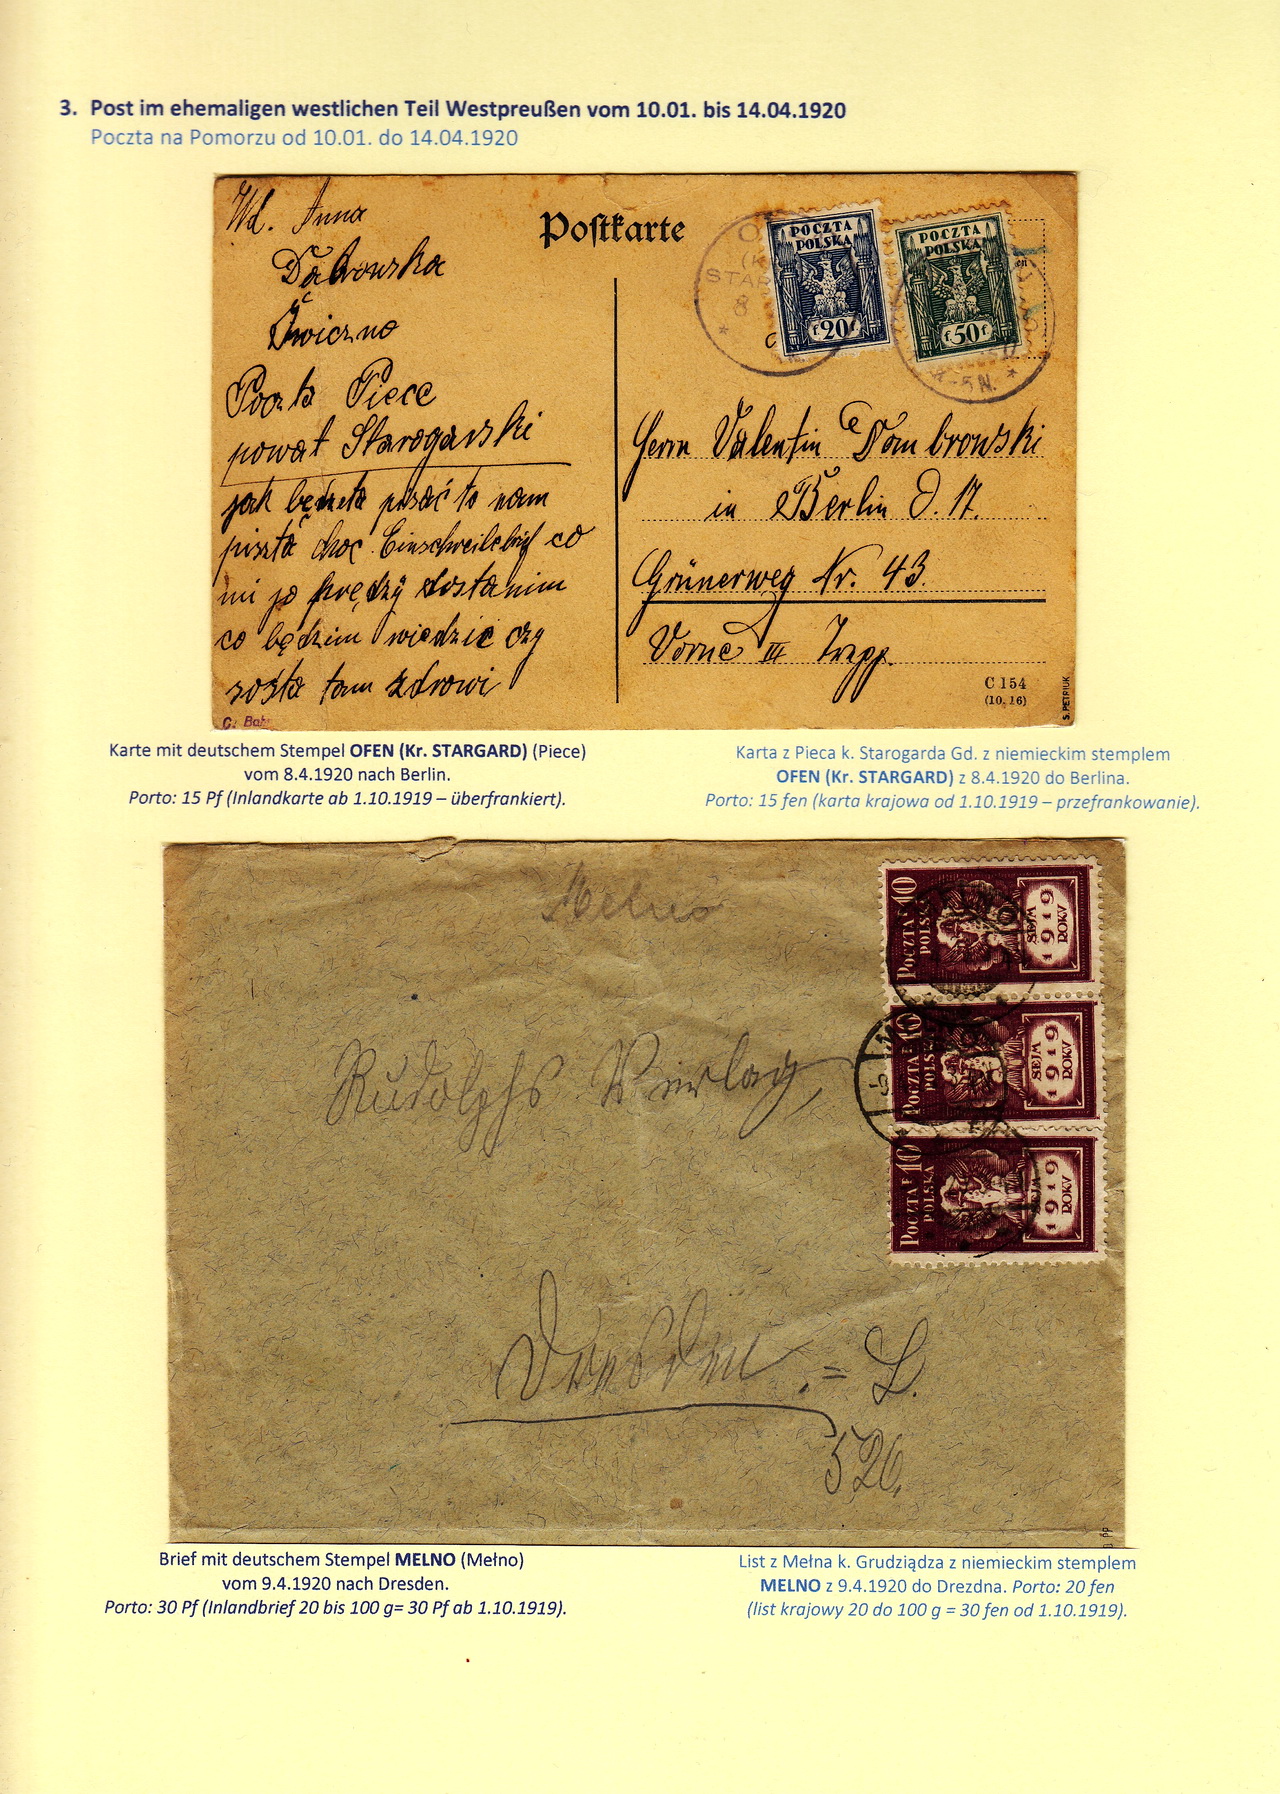 3. Post im ehemaligen westlichen Teil Westpreußen vom 10.01. bis 14.04.1920
Poczta na Pomorzu od 10.01. do 14.04.1920
Wd. Anna
Dąbrowska
Poczta Piece
powiat Starogardski
Postkarte
STAR
8
POCZTA
POLSKA
f. 20 f.
POCZTA
POLSKA
f. 50 f.
-5 N. *
jak będzeta pisać to nam
piszta choć Einschreibebrief co
mi jo prędzy dostanim
co będzim wiedzić czy
zosta tam zdrowi
Herrn Valentin Dombrowski
in Berlin O. 17.
Grünerweg Nr. 43.
Vorne III Trepp.
C 154
(10. 16)
S. PETRIUK
Karte mit deutschem Stempel OFEN (Kr. STARGARD) (Piece)
vom 8.4.1920 nach Berlin.
Porto: 15 Pf (Inlandkarte ab 1.10.1919 – überfrankiert).
Karta z Pieca k. Starogarda Gd. z niemieckim stemplem
OFEN (Kr. STARGARD) z 8.4.1920 do Berlina.
Porto: 15 fen (karta krajowa od 1.10.1919 – przefrankowanie).
Melno
POCZTA F 10
POLSKA
SEJM
1919
ROKV
POCZTA F 10
POLSKA
SEJM
1919
ROKV
POCZTA F 10
POLSKA
SEJM
1919
ROKV
Rudolphs Verlag,
Dresden. = L.
526.
Brief mit deutschem Stempel MELNO (Mełno)
vom 9.4.1920 nach Dresden.
Porto: 30 Pf (Inlandbrief 20 bis 100 g= 30 Pf ab 1.10.1919).
List z Mełna k. Grudziądza z niemieckim stemplem
MELNO z 9.4.1920 do Drezdna. Porto: 20 fen
(list krajowy 20 do 100 g = 30 fen od 1.10.1919).